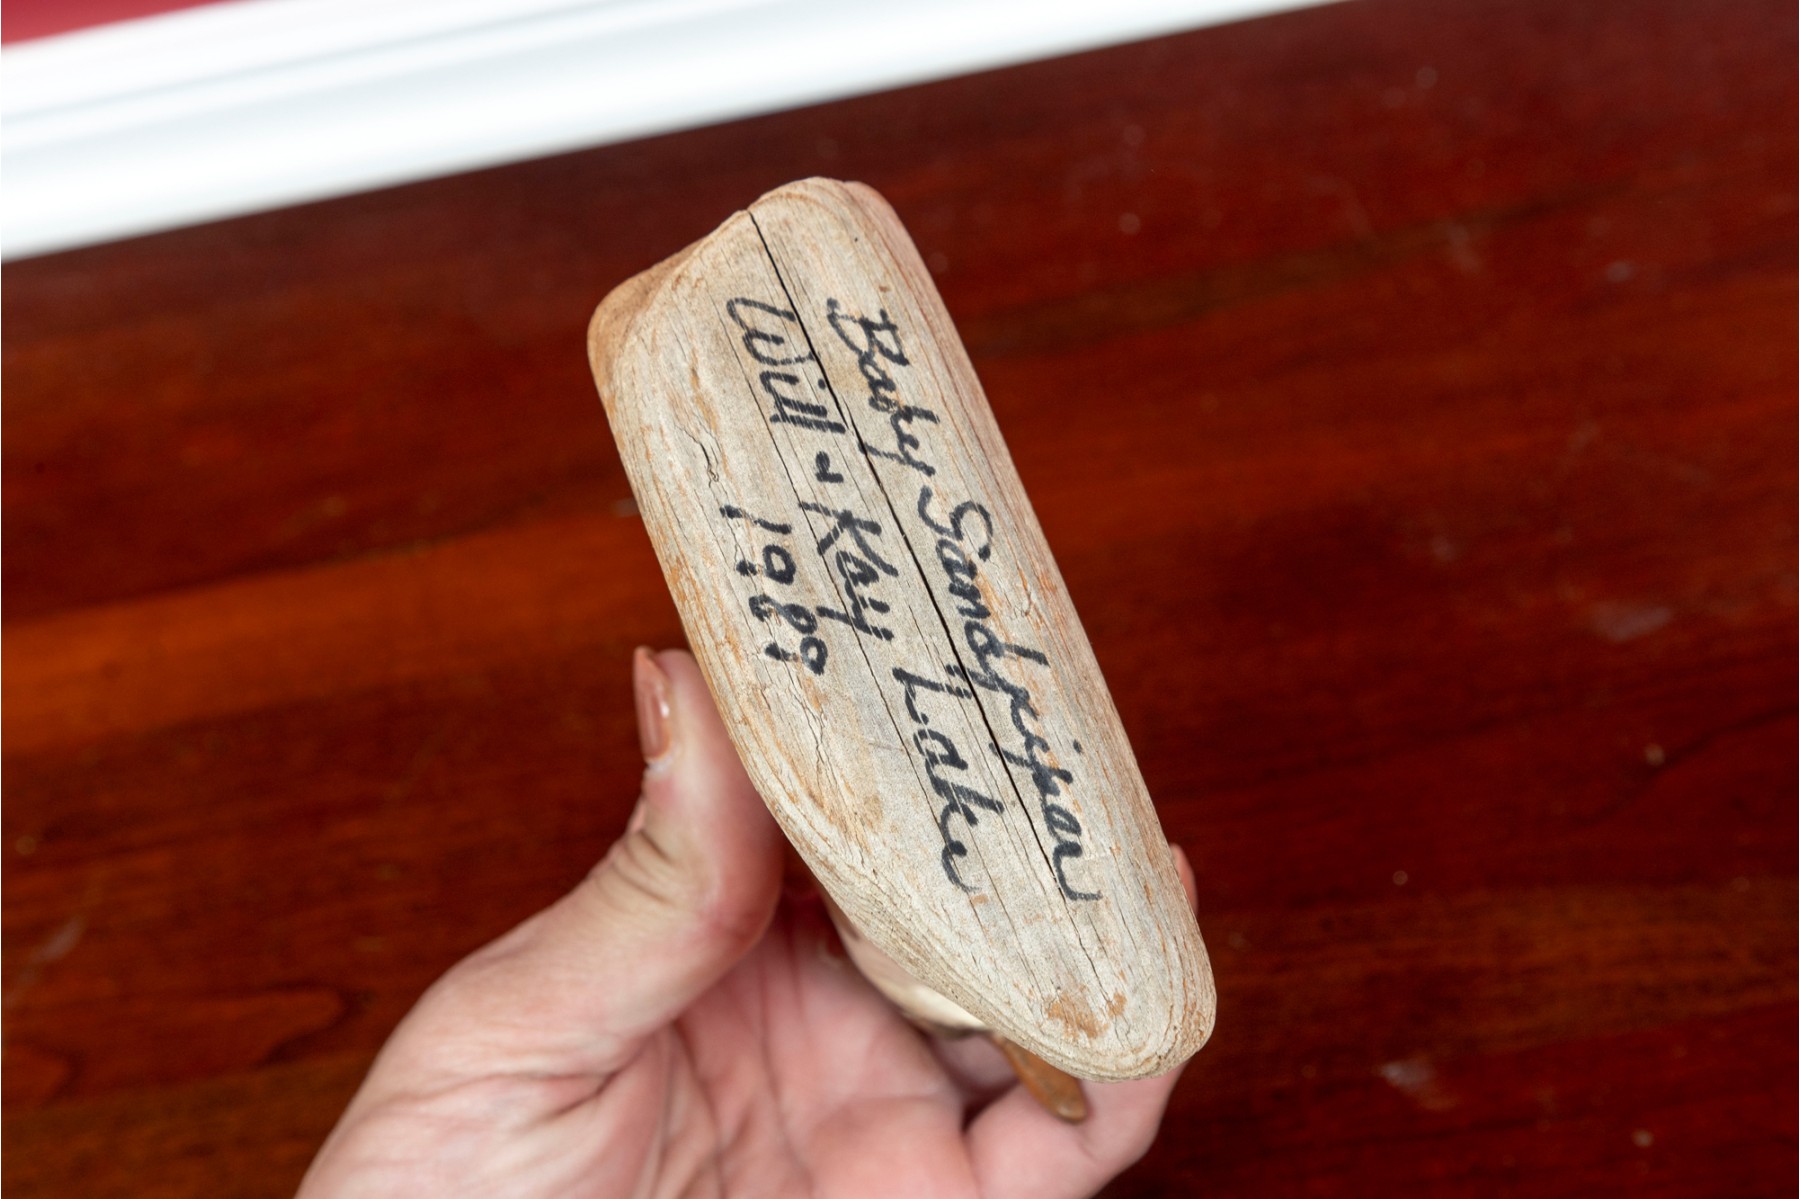 Baby Sandpiper
Will & Kay Lake
1989